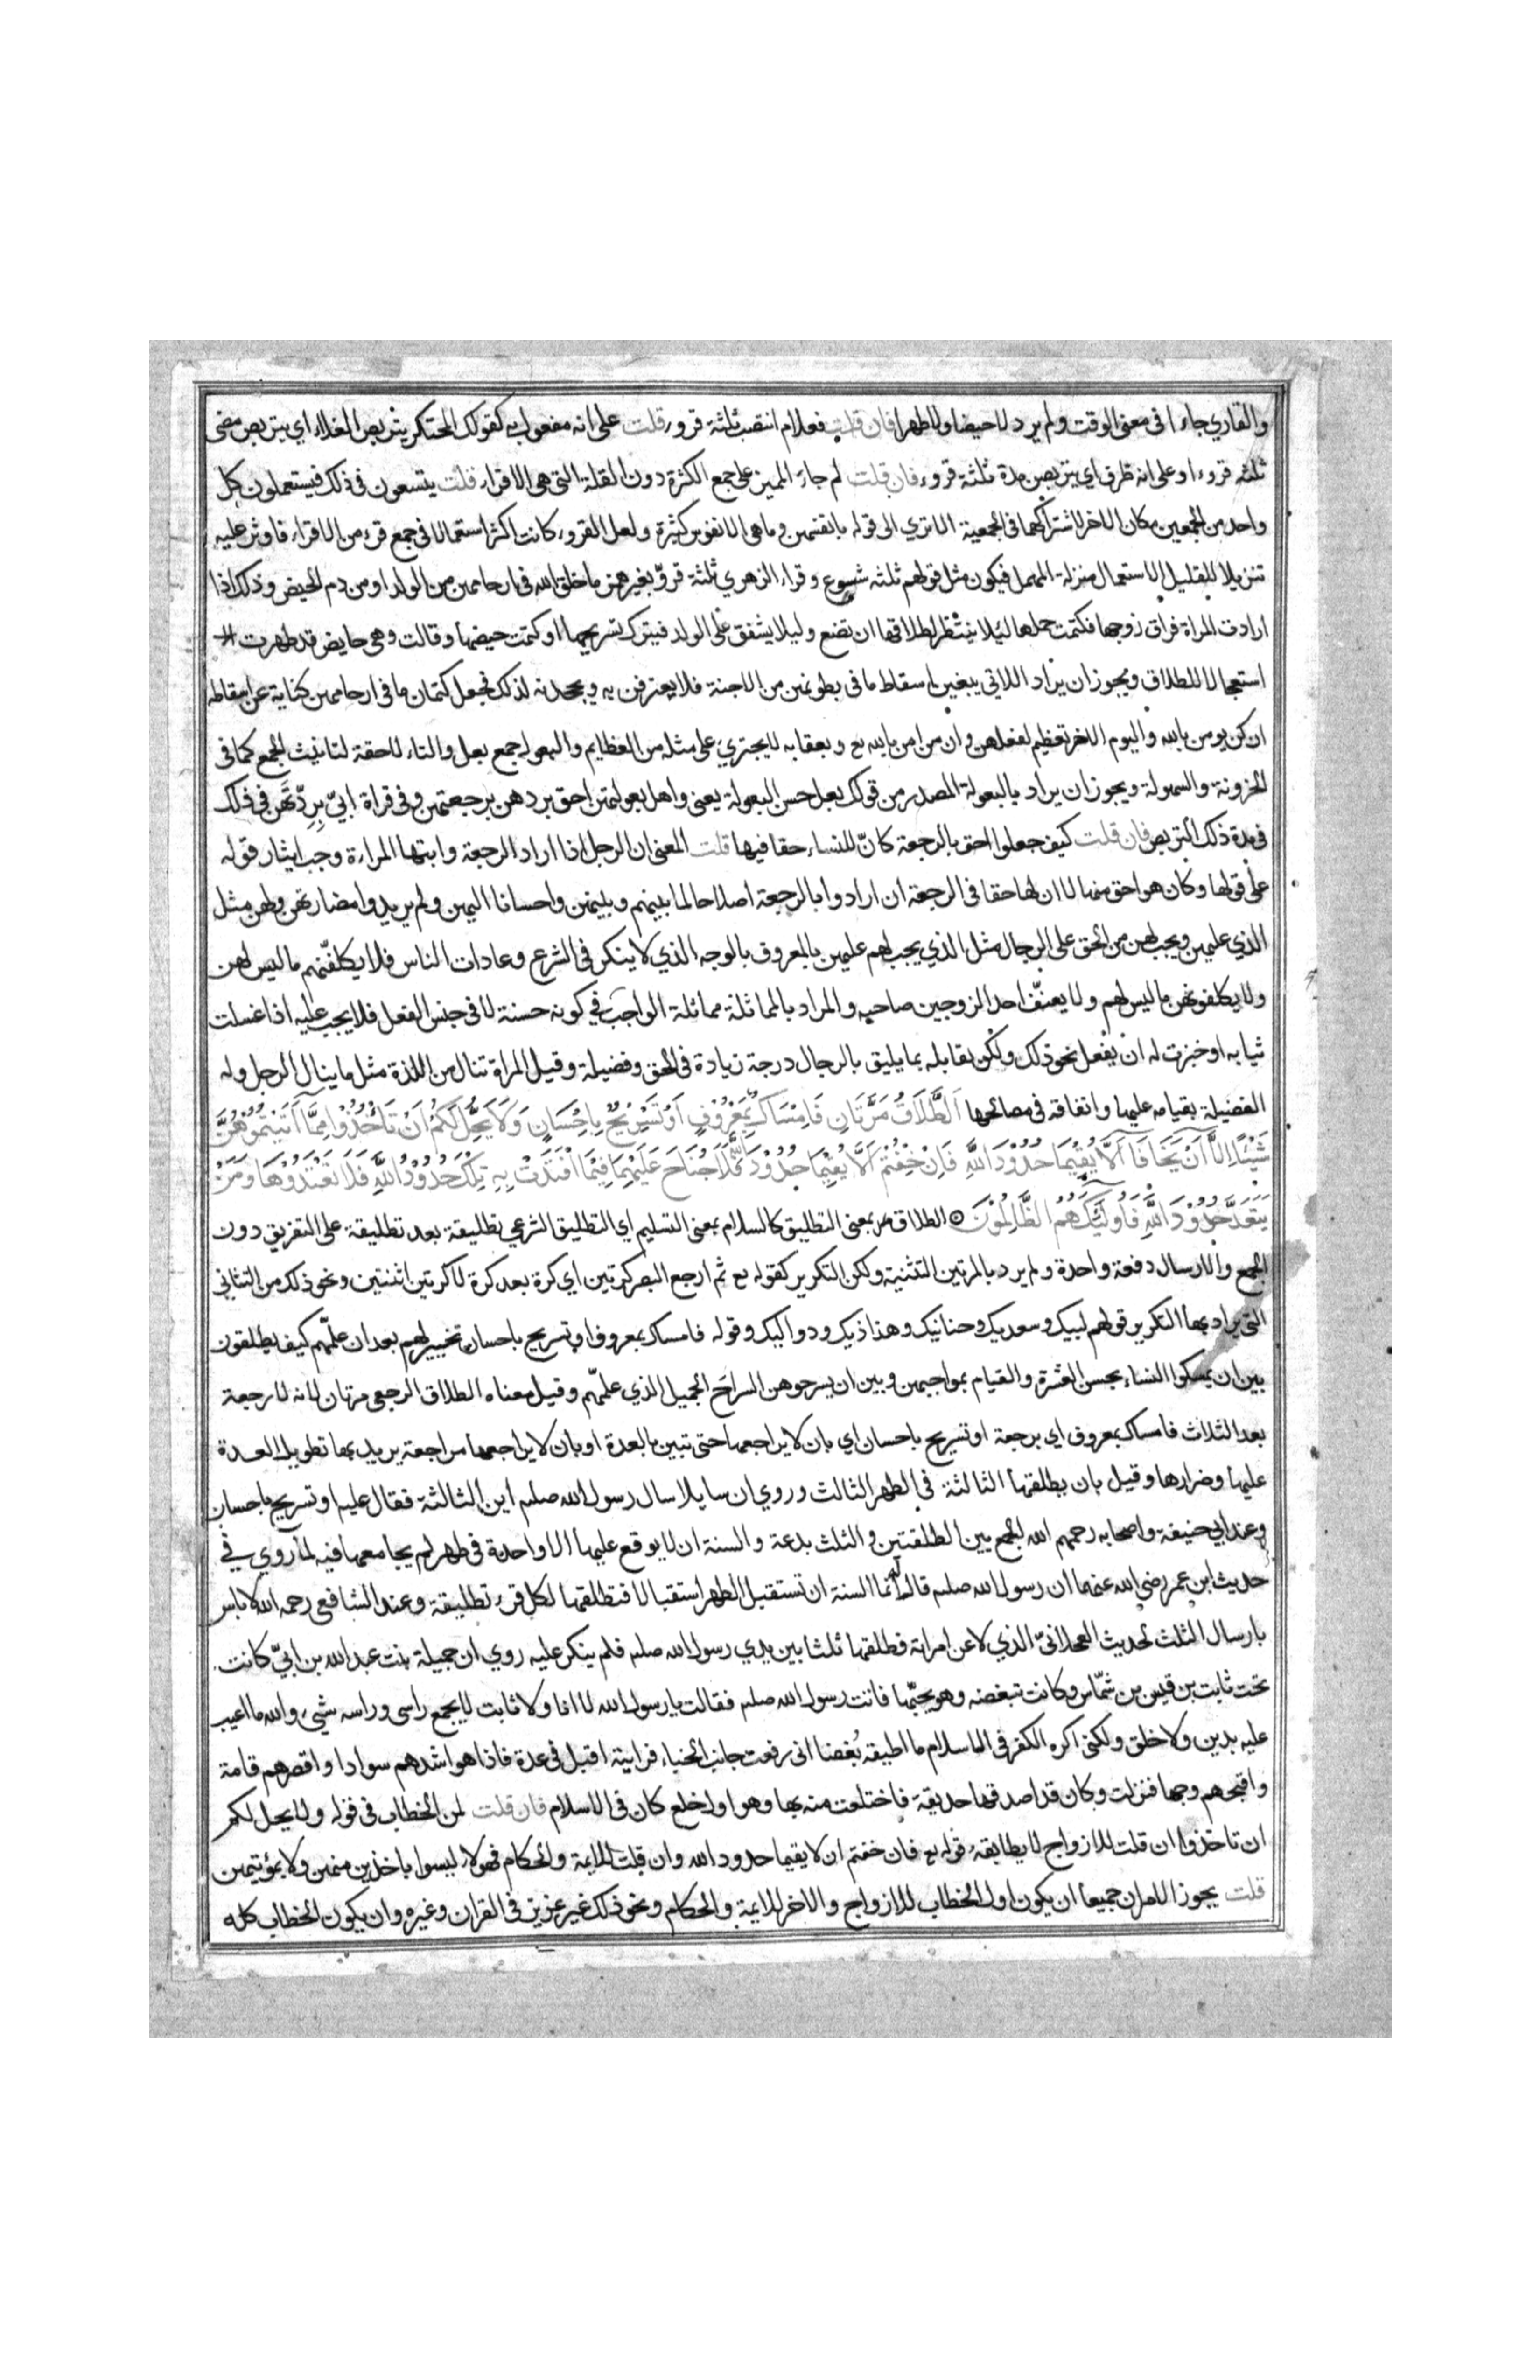 والقاري جاءا في معنى الوقت ولم يرد لا حيضا ولا طهرا فان قلت فعلام انتصب ثلثة قروء قلت على انه مفعول به كقولك المحتكر يتربص الغلاء اي يتربصن مضي
ثلثه قروء او على انه ظرف اي يتربصن مدة ثلثة قروء فان قلت لم جاء المميز على جمع الكثرة دون القلة التي هي الاقراء قلت يتسعون في ذلك فيستعملون كل
واحد من الجمعين مكان الاخر لاشتراكهما في الجمعية الا تري الى قوله بانفسهن وما هي الا نفوس كثيرة ولعل القروء كانت اكثر استعمالا في جمع قرء من الاقراء فاوثر عليه
تنزيلا للقليل الاستعمال منزلة المهمل فيكون مثل قولهم ثلثه شسوع وقراء الزهري ثلثة قروّ بغير همز ما خلق الله في ارحامهن من الولد او من دم الحيض وذلك اذا
ارادت المراة فراق زوجها فكتمت حملها ليلا ينتظر لطلاقها ان تضع وليلا يشفق على الولد فيترك تسريحها او كتمت حيضها وقالت وهي حايض قد طهرت
استعجالا للطلاق ويجوز ان يراد اللاتي يبغين اسقاط ما في بطونهن من الاجنة فلا يعترفن به ويجحدنه لذلك فجعل كتمان ما في ارحامهن كناية عن اسقاطه
ان كن يومن بالله واليوم الاخر تعظيم لفعلهن وان من امن بالله تع وبعقابه لا يجتري على مثله من العظايم والبعولة جمع بعل والتاء لاحقة لتانيث الجمع كما في
الحزونة والسهولة ويجوز ان يراد بالبعولة المصدر من قولك بعل حسن البعولة يعني واهل بعولتهن احق بردهن برجعتهن وفي قراة ابيّ بِردّتهن في ذلك
في مدة ذلك التربص فان قلت كيف جعلوا احق بالرجعة كانّ للنساء حقا فيها قلت المعنى ان الرجل اذا اراد الرجعة وابتها المراءة وجب ايثار قوله
على قولها وكان هو احق منها لا ان لها حقا في الرجعة ان ارادوا بالرجعة اصلاحا لما بينهم وبينهن واحسانا اليهن ولم يريدوا مضارتهن ولهن مثل
الذي عليهن ويجب لهن من الحق على الرجال مثل الذي يجب لهم عليهن بالمعروف بالوجه الذي لا ينكر في الشرع وعادات الناس فلا يكلفنهم ما ليس لهن
ولا يكلفونهن ما ليس لهم ولا يعنّف احد الزوجين صاحبه والمراد بالمماثلة مماثلة الواجب في كونه حسنة لا في جنس الفعل فلا يجب عليه اذا غسلت
ثيابه او خبزت له ان يفعل نحو ذلك ولكن يقابله بما يليق بالرجال درجة زيادة في الحق وفضيلة وقيل المراة تنال من اللذة مثل ما ينال الرجل وله
الفضيلة بقيامه عليها وانفاقه في مصالحها اَلطَّلَاقُ مَرَّتَانِ فَاِمْسَاكٌ بِمَعْرُوفٍ اَوْ تَسْرِيحٌ بِاِحْسَانٍ وَلَا يَحِلُّ لَكُمْ اَنْ تَاْخُذُوا مِمَّا آتَيْتُمُوهُنَّ
شَيْئًا اِلَّا اَنْ يَخَافَا اَلَّا يُقِيمَا حُدُودَ اللّٰهِ فَاِنْ خِفْتُمْ اَلَّا يُقِيمَا حُدُودَ اللّٰهِ فَلَا جُنَاحَ عَلَيْهِمَا فِيمَا افْتَدَتْ بِهِ تِلْكَ حُدُودُ اللّٰهِ فَلَا تَعْتَدُوهَا وَمَنْ
يَتَعَدَّ حُدُودَ اللّٰهِ فَاُولٰئِكَ هُمُ الظَّالِمُونَ ۞ الطلاق بمعنى التطليق كالسلام بمعنى التسليم اي التطليق الشرعي تطليقة بعد تطليقة على التفريق دون
الجمع والارسال دفعة واحدة ولم يرد بالمرتين التثنية ولكن التكرير كقوله تع ثم ارجع البصر كرتين اي كرة بعد كرة لا كرتين اثنتين ونحو ذلك من التثاني
التي يراد بها التكرير قولهم لبيك وسعديك وحنانيك وهذاذيك ودواليك وقوله فامساك بمعروف او تسريح باحسان تخيير لهم بعد ان علمهم كيف يطلقون
بين ان يمسكوا النساء بحسن العشرة والقيام بمواجبهن وبين ان يسرحوهن السراحَ الجميل الذي علمهم وقيل معناه الطلاق الرجعي مرتان لانه لا رجعة
بعد الثلاث فامساك بمعروف اي برجعة او تسريح باحسان اي بان لا يراجعها حتى تبين بالعدة او بان لا يراجعها مراجعة يريد بها تطويل العدة
عليها وضرارها وقيل بان يطلقها الثالثة في الطهر الثالث وروي ان سايلا سال رسول الله صلعم اين الثالثة فقال عليه او تسريح باحسان
وعند ابي حنيفة واصحابه رحمهم الله الجمع بين الطلقتين والثلث بدعة والسنة ان لا يوقع عليها الا واحدة في طهر لم يجامعها فيه لما روي في
حديث ابن عمر رضي الله عنهما ان رسول الله صلعم قال له انما السنة ان تستقبل الطهر استقبالا فتطلقها لكل قرء تطليقة وعند الشافعي رحمه الله لا باس
بارسال الثلث لحديث العجلانيّ الذي لاعن امراته فطلقها ثلثا بين يدي رسول الله صلعم فلم ينكر عليه روي ان جميلة بنت عبد الله بن ابيّ كانت
تحت ثابت بن قيس بن شمّاس وكانت تبغضه وهو يحبّها فاتت رسول الله صلعم فقالت يا رسول الله لا انا ولا ثابت لا يجمع راسي وراسه شيء والله ما اعيب
عليه بدين ولا خلق ولكني اكره الكفر في الاسلام ما اطيقه بُغضا اني رفعت جانب الخباء فرايته اقبل في عدة فاذا هو اشدهم سوادا واقصرهم قامة
واقبحهم وجها فنزلت وكان قد اصدقها حديقة فاختلعت منه بها وهو اول خلع كان في الاسلام فان قلت لمن الخطاب في قوله ولا يحل لكم
ان تاخذوا ان قلت للازواج لا يطابقه قوله تع فان خفتم ان لا يقيما حدود الله وان قلت للايمة والحكام فهولاء ليسوا باخذين منهن ولا بمؤتيهن
قلت يجوز الامران جميعا ان يكون اول الخطاب للازواج والاخر للايمة والحكام ونحو ذلك غير عزيز في القران وغيره وان يكون الخطاب كله